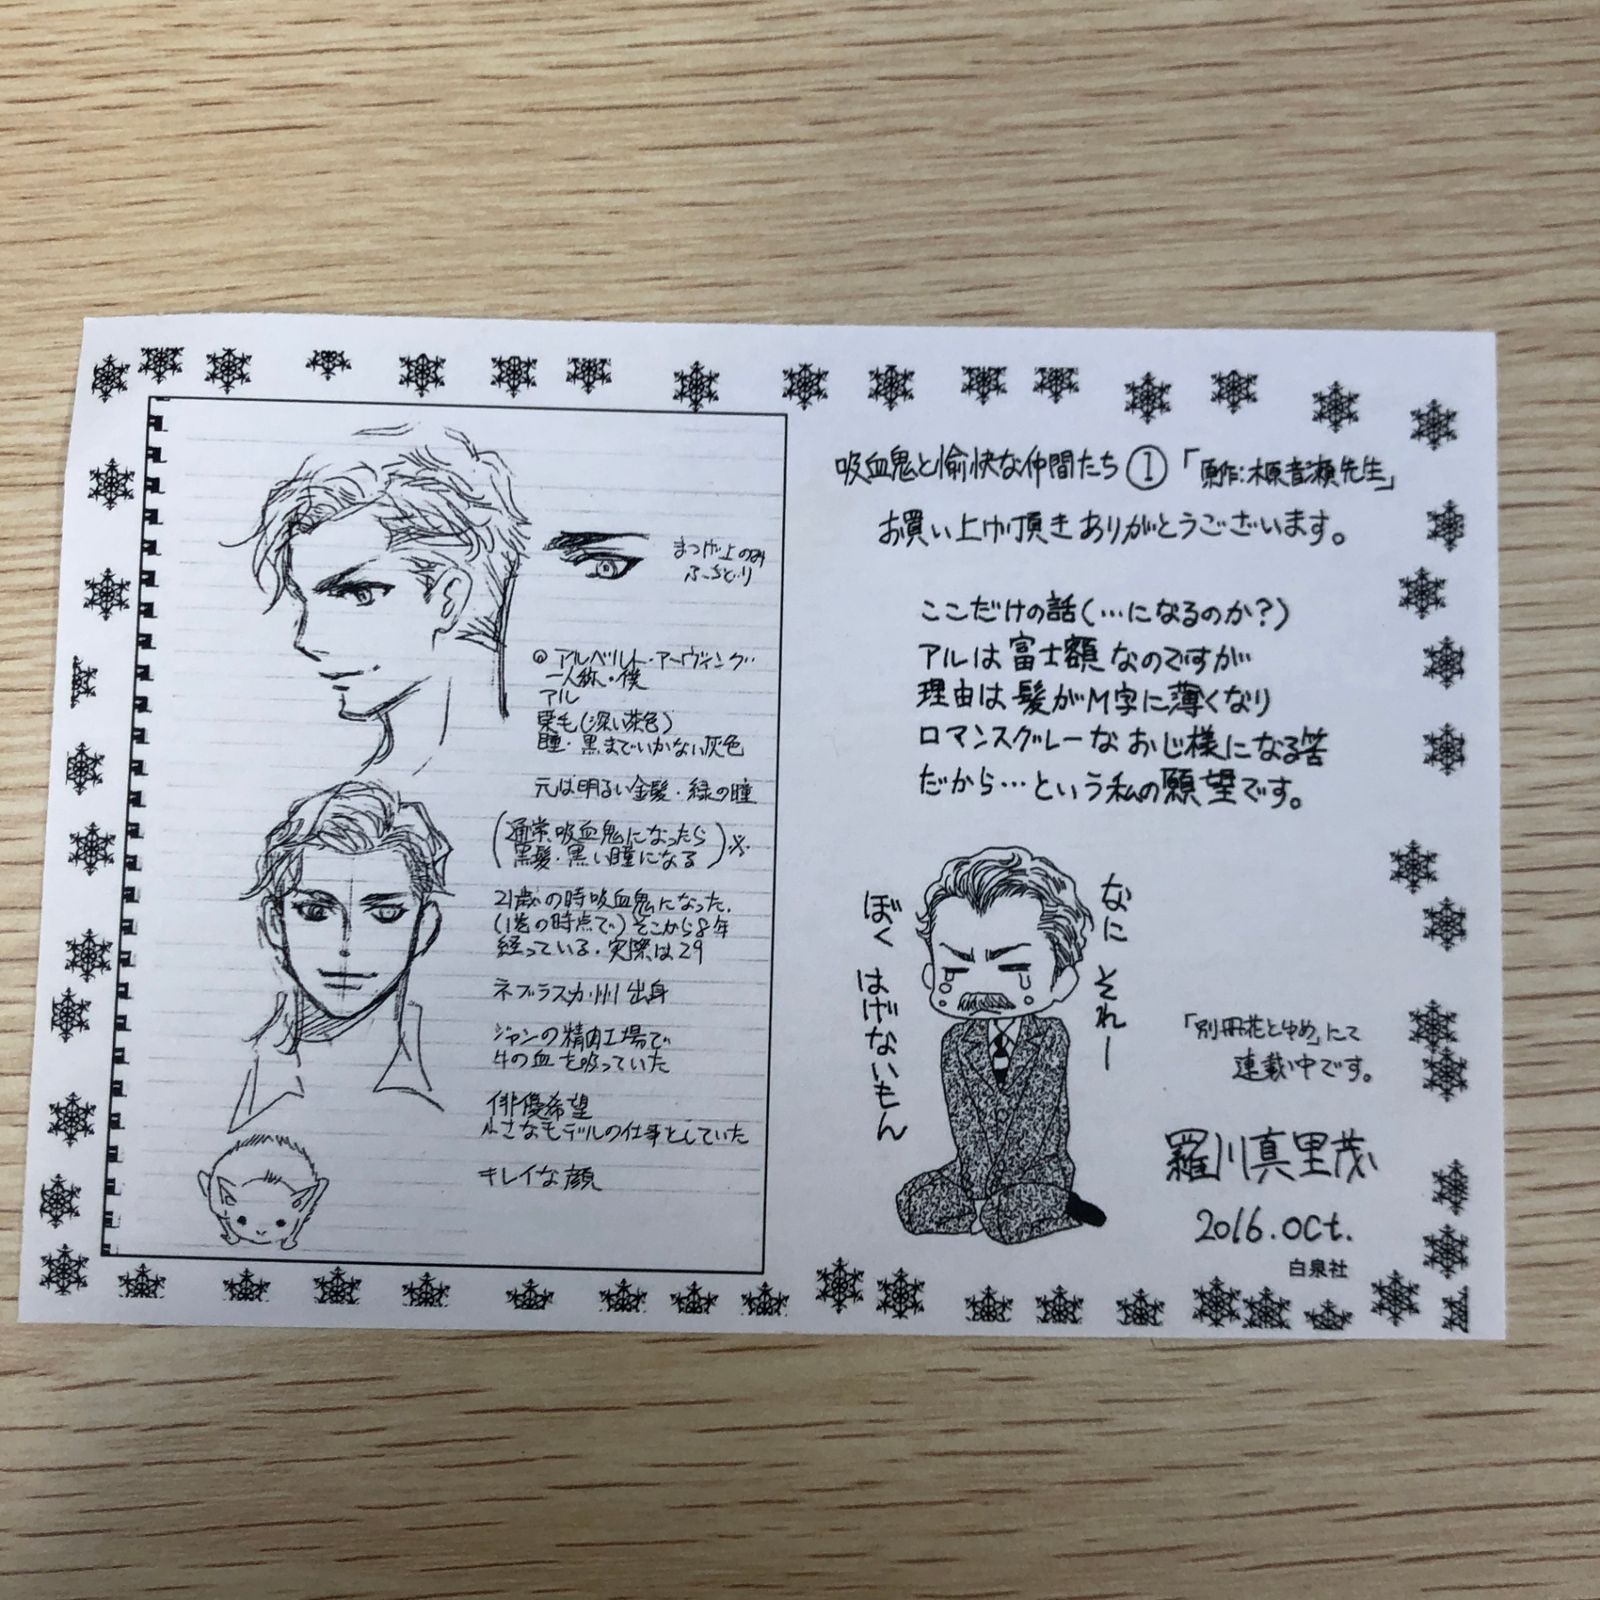 まつげ上のみ
ふちどり
◎アルベルト・アーヴィング
一人称・僕
アル
栗毛(深い茶色)
瞳・黒までいかない灰色
元は明るい金髪・緑の瞳
(通常、吸血鬼になったら
黒髪・黒い瞳になる)※
21歳の時吸血鬼になった.
(1巻の時点で)そこから8年
経っている.実際は29
ネブラスカ州出身
ジャンの精肉工場で
牛の血を吸っていた
俳優希望
小さなモデルの仕事をしていた
キレイな顔
吸血鬼と愉快な仲間たち①「原作:木原音瀬先生」
お買い上げ頂きありがとうございます。
ここだけの話(…になるのか?)
アルは富士額なのですが
理由は髪がM字に薄くなり
ロマンスグレーなおじ様になる筈
だから…という私の願望です。
なにそれー
ぼくはげないもん
「別冊花とゆめ」にて
連載中です。
羅川真里茂
2016.Oct.
白泉社